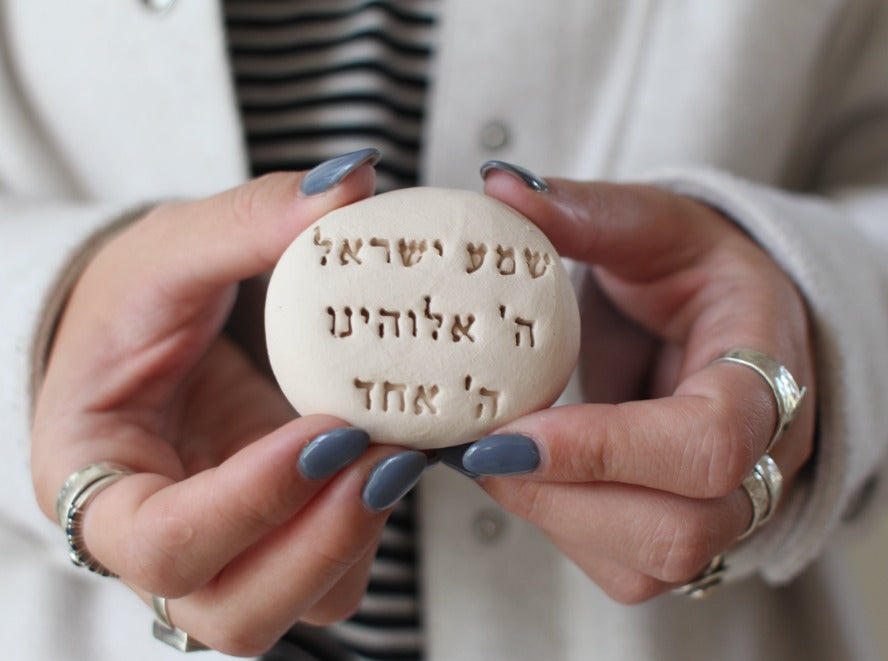 שמע ישראל
ה' אלוהינו
ה' אחד